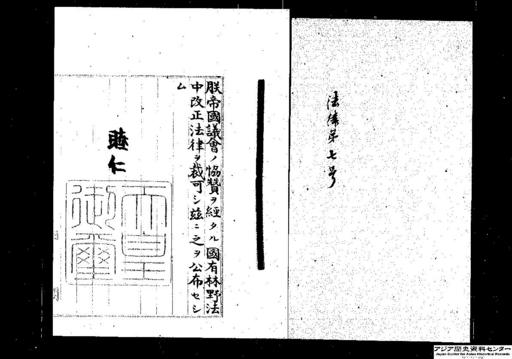 法律第七号
朕帝國議會ノ協賛ヲ經タル國有林野法
中改正法律ヲ裁可シ玆ニ之ヲ公布セシ
ム
睦仁
天皇御璽
アジア歴史資料センター
Japan Center for Asian Historical Records